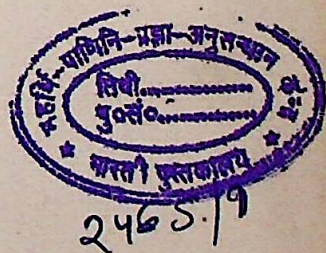 महर्षि-पाणिनि-प्रज्ञा-अनुसन्धान
तिथी..................
पु०सं०..................
★ भारती पुस्तकालय ★
2465/9